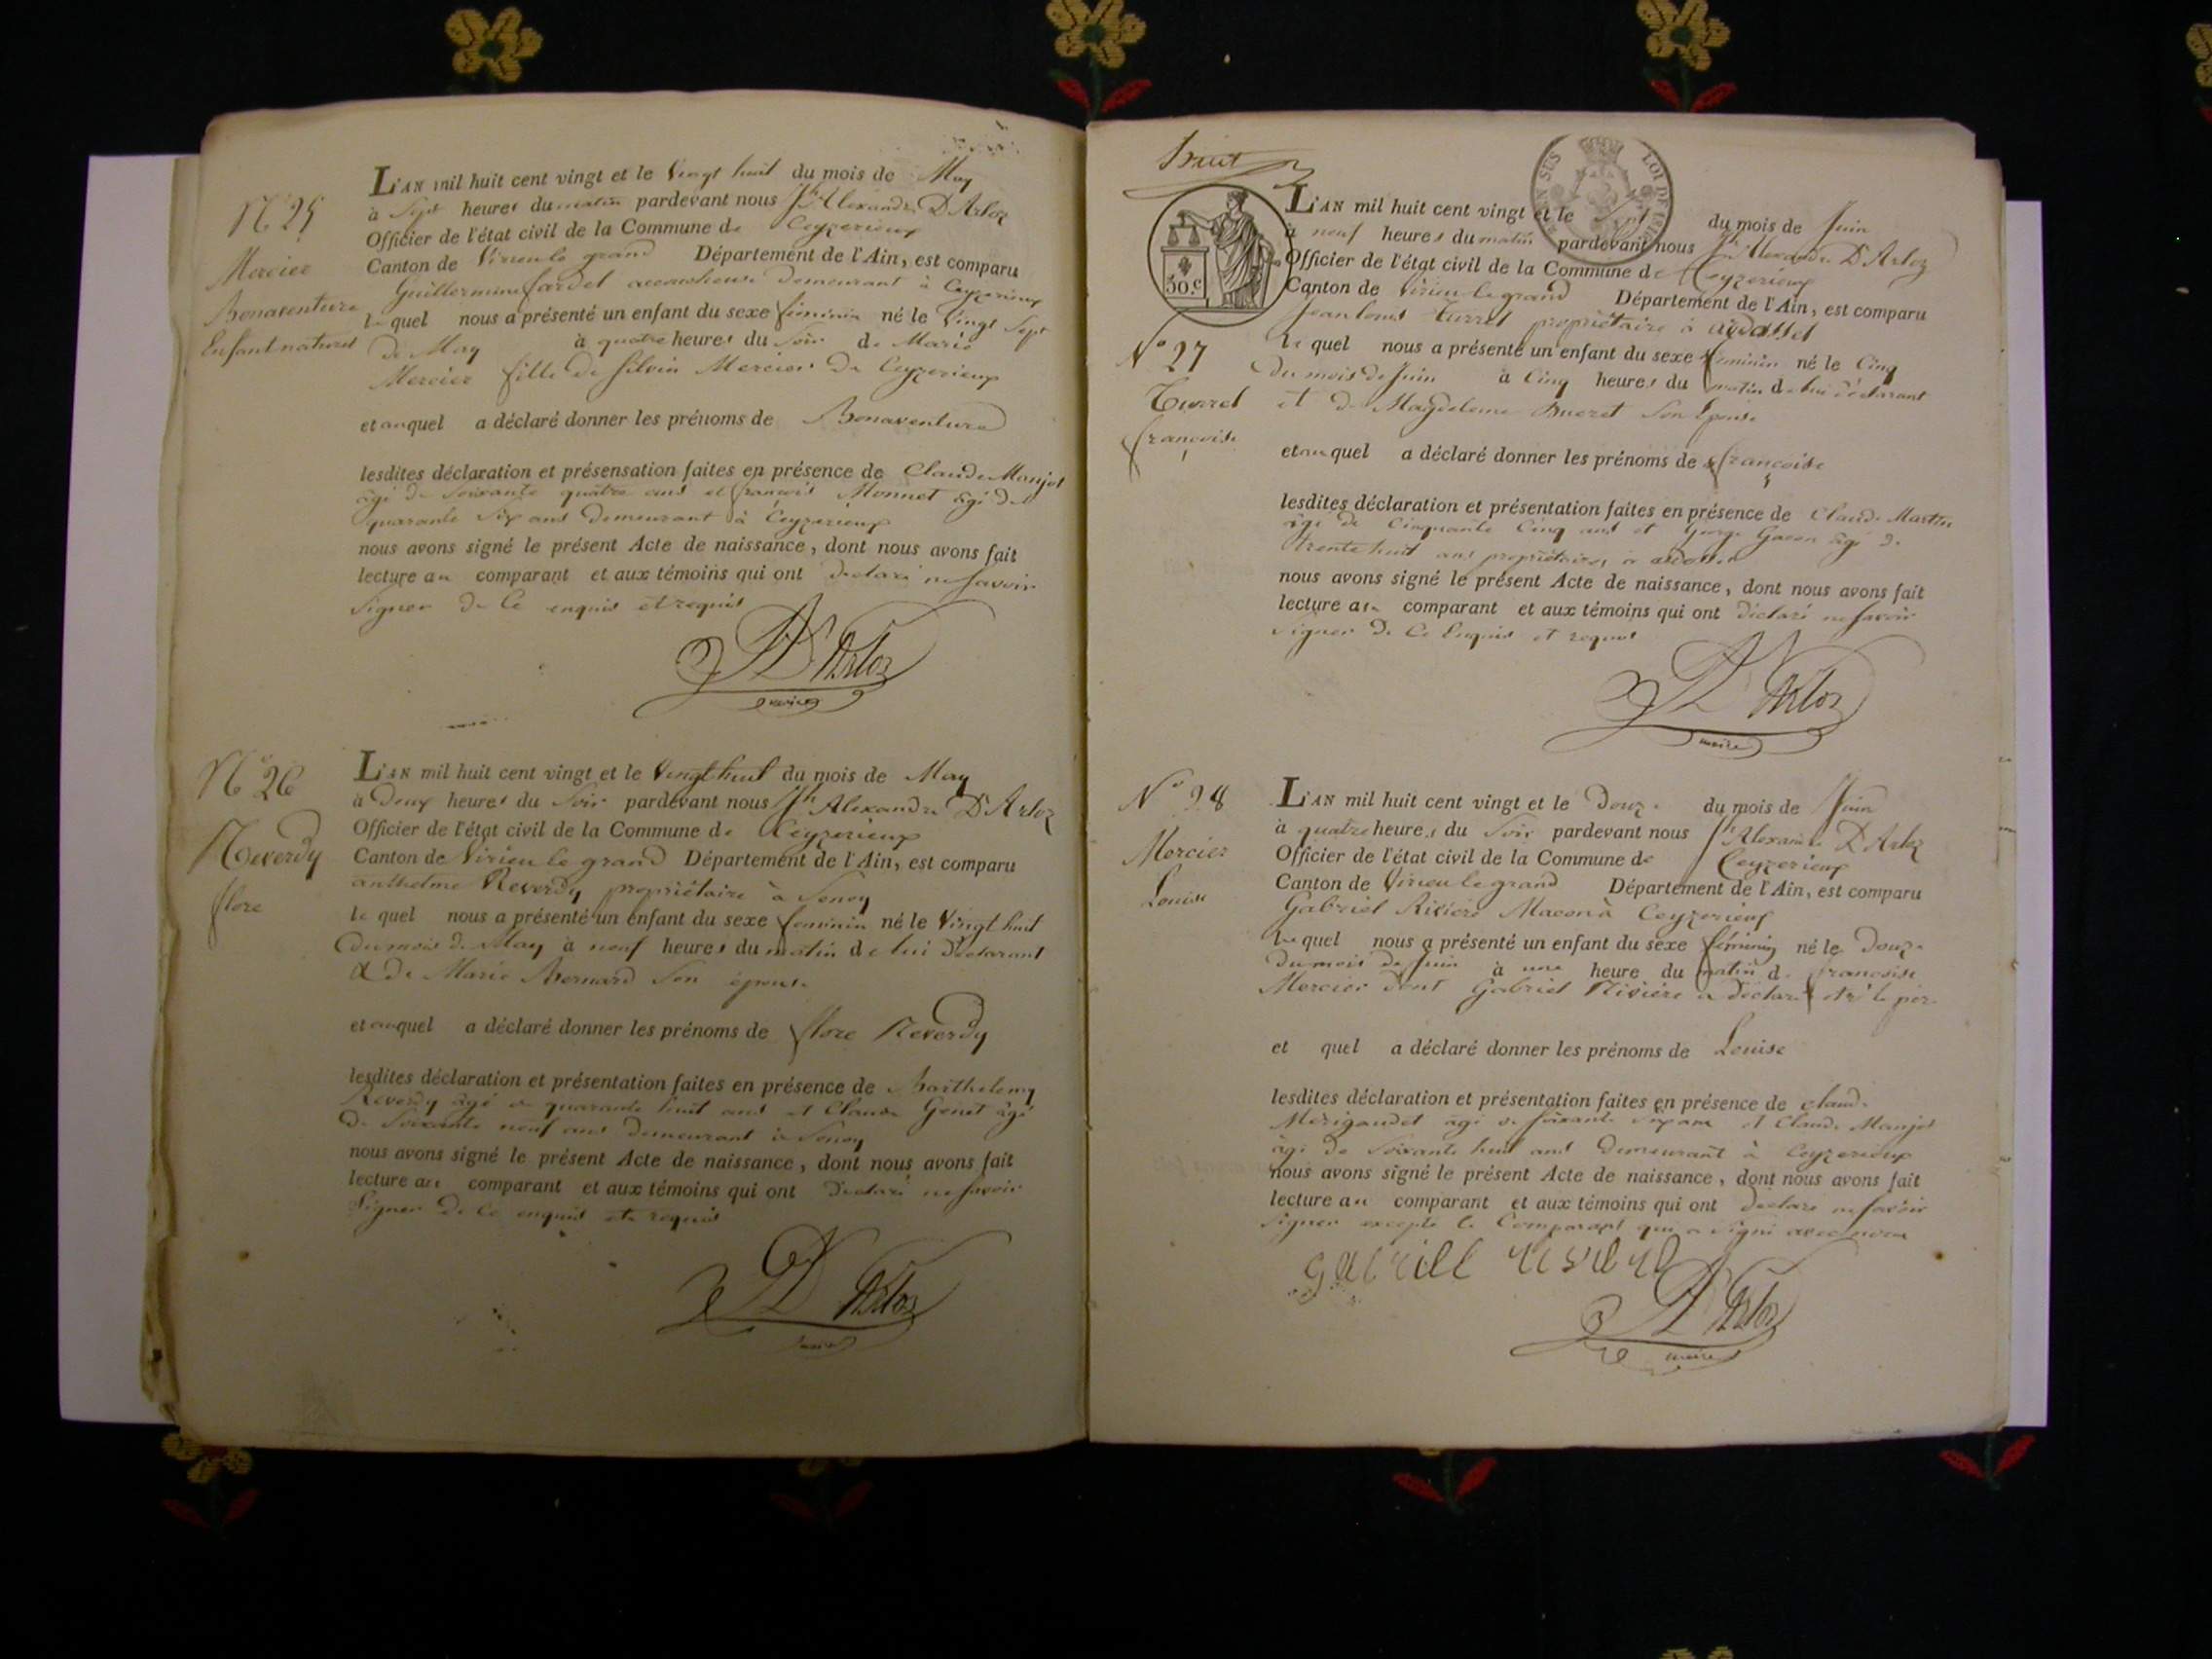 N° 25
Mercier
Bonaventure
Enfant naturel
L'AN mil huit cent vingt et le Vingt huit du mois de May
à Sept heures du matin pardevant nous Jh Alexandre D'Arloz
Officier de l'état civil de la Commune de Ceyzerieux
Canton de Virieu le grand Département de l'Ain, est comparu
Guillermine fardel accoucheuse demeurant à Ceyzerieux
le quel nous a présenté un enfant du sexe feminin né le Vingt Sept
de May à quatre heures du Soir de Marie
Mercier fille de Silvin Mercier de Ceyzerieux
et auquel a déclaré donner les prénoms de Bonaventure
lesdites déclaration et présensation faites en présence de Claude Monjot
âgé de Soixante quatre ans et françois Monnet âgé de
quarante Six ans demeurant à Ceyzerieux
nous avons signé le présent Acte de naissance, dont nous avons fait
lecture au comparant et aux témoins qui ont declaré ne Savoir
Signer de Ce enquis et requis
D'Arloz
maire
N° 26
Reverdy
flore
L'AN mil huit cent vingt et le Vingt huit du mois de May
à Deux heures du Soir pardevant nous Jh Alexandre D'Arloz
Officier de l'état civil de la Commune de Ceyzerieux
Canton de Virieu le grand Département de l'Ain, est comparu
anthelme Reverdy propriétaire à Senoy
le quel nous a présenté un enfant du sexe feminin né le Vingt huit
du mois de May à neuf heures du matin de lui déclarant
et de Marie Bernard Son épouse
et auquel a déclaré donner les prénoms de flore Reverdy
lesdites déclaration et présentation faites en présence de Barthelemy
Reverdy âgé de quarante huit ans et Claude Genet âgé
de Soixante neuf ans demeurant à Senoy
nous avons signé le présent Acte de naissance, dont nous avons fait
lecture au comparant et aux témoins qui ont declaré ne Savoir
Signer de Ce enquis et requis
D'Arloz
maire
huit
30.c
LOI DE
L'AN mil huit cent vingt et le Sept du mois de Juin
à neuf heures du matin pardevant nous Jh Alexandre D'Arloz
Officier de l'état civil de la Commune de Ceyzerieux
Canton de Virieu le grand Département de l'Ain, est comparu
Jean louis turrel propriétaire à aydossel
N° 27
Turrel
françoise
le quel nous a présenté un enfant du sexe feminin né le Cinq
du mois de Juin à Cinq heures du matin de lui déclarant
et de Magdeleine Buezet Son Epouse
et auquel a déclaré donner les prénoms de françoise
lesdites déclaration et présentation faites en présence de Claude Martin
âgé de Cinquante Cinq ans et George Gacon âgé de
trente huit ans propriétaires à
nous avons signé le présent Acte de naissance, dont nous avons fait
lecture au comparant et aux témoins qui ont déclaré ne Savoir
Signer de Ce Enquis et requis
D'Arloz
maire
N° 28
Mercier
Louise
L'AN mil huit cent vingt et le Douze du mois de Juin
à quatre heures du Soir pardevant nous Jh Alexandre D'Arloz
Officier de l'état civil de la Commune de Ceyzerieux
Canton de Virieu le grand Département de l'Ain, est comparu
Gabriel Riviere Macon à Ceyzerieux
le quel nous a présenté un enfant du sexe féminin né le Douze
du mois de Juin à une heure du matin de francoise
Mercier dont Gabriel Riviere a déclaré etre le pere
et quel a déclaré donner les prénoms de Louise
lesdites déclaration et présentation faites en présence de claude
Merigaudet âgé de Soixante Six ans et Claude Monjot
âgé de Soixante huit ans demeurant à Ceyzerieux
nous avons signé le présent Acte de naissance, dont nous avons fait
lecture au comparant et aux témoins qui ont déclaré ne Savoir
Signer excepté le Comparant qui a Signé avec nous
D'Arloz
maire